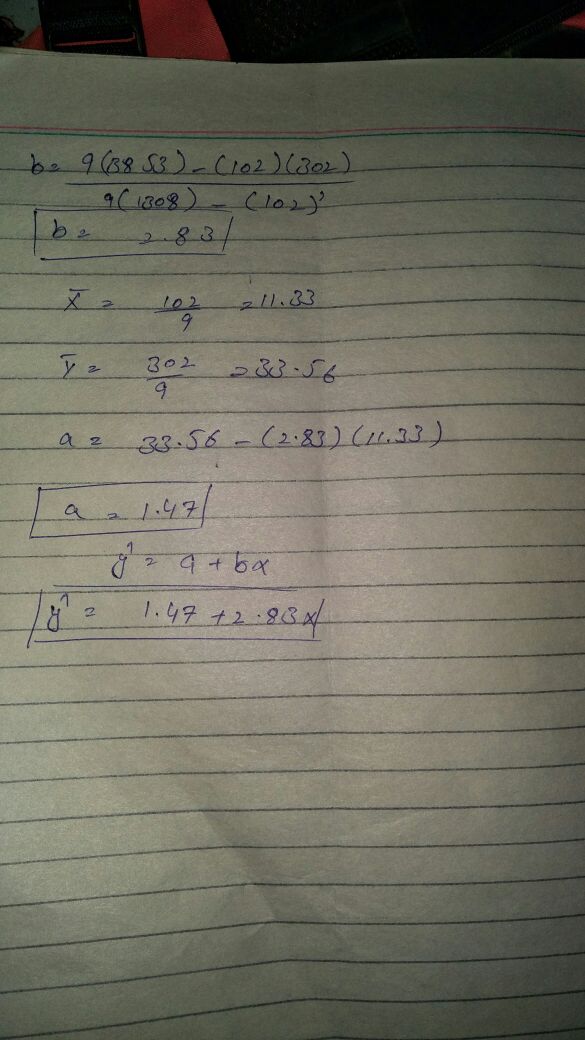 b = 9(3853) - (102)(302)
9(1308) - (102)²
b = 2.83
x̄ = 102/9 = 11.33
ȳ = 302/9 = 33.56
a = 33.56 - (2.83)(11.33)
a = 1.47
ŷ = a + bx
ŷ = 1.47 + 2.83x